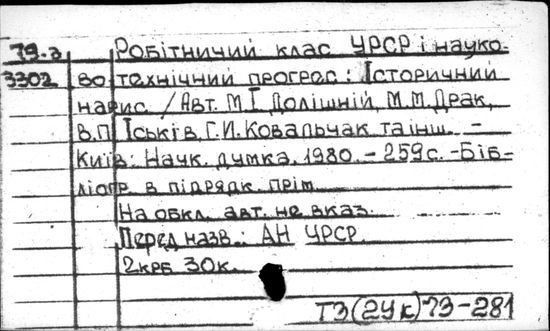 79-3 Робітничий клас УРСР і науко-
3302 во технічний прогрес: Історичний
нарис. /Авт. М.І. Долішній, М.М. Драк,
В.П. Іськів, Г.И. Ковальчак та інш. -
Київ: Наук. думка, 1980. - 259с. - Біб-
ліогр. в підрядк. прім.
На обкл. авт. не вказ.
Перед назв.: АН УРСР.
2крб 30к.
Т3(2Ук)73-281